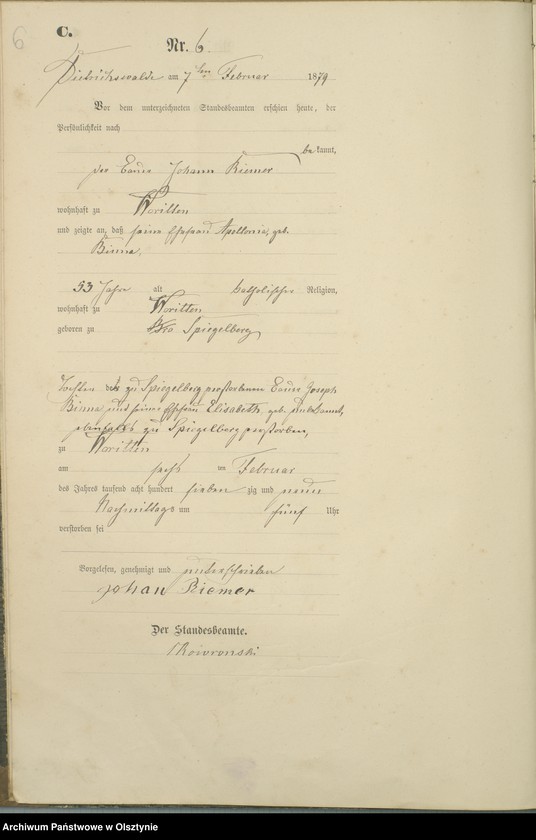 6
C.
Nr. 6.
Dietrichswalde am 7ten Februar 1879
Vor dem unterzeichneten Standesbeamten erschien heute, der
Persönlichkeit nach
bekannt,
der Johann Riemer
wohnhaft zu Woritten
und zeigte an, daß seine Ehefrau Apollonia, geb.
Binna,
53 Jahre alt katholischer Religion,
wohnhaft zu Woritten
geboren zu Spiegelberg
Tochter des zu Spiegelberg verstorbenen Joseph
Binna und seiner Ehefrau Elisabeth, geb. unbekannt,
ebenfalls zu Spiegelberg verstorben,
zu Woritten
am sechs ten Februar
des Jahres tausend acht hundert sieben zig und neun
Nachmittags um fünf Uhr
verstorben sei
Vorgelesen, genehmigt und unterschrieben
Johan Riemer
Der Standesbeamte.
Archiwum Państwowe w Olsztynie